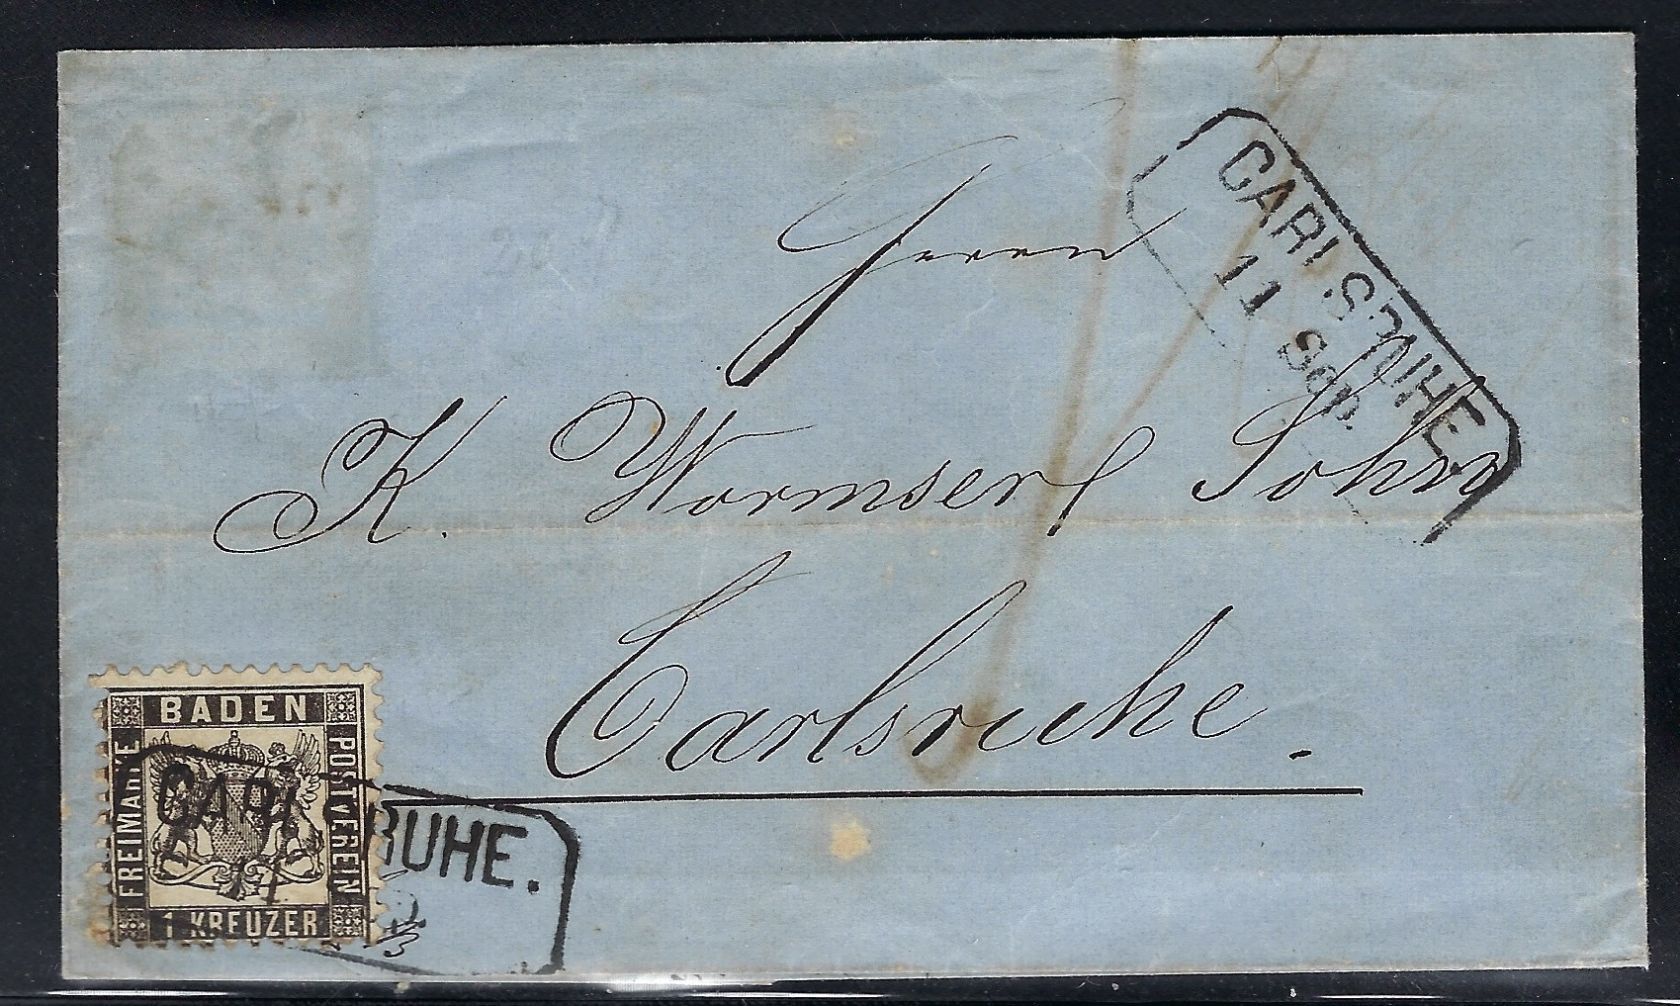 CARLSRUHE.
11 Sep.
Herrn
K. Wormser Sohn
Carlsruhe.
BADEN
FREIMARKE
POSTVEREIN
1 KREUZER
CARLSRUHE.